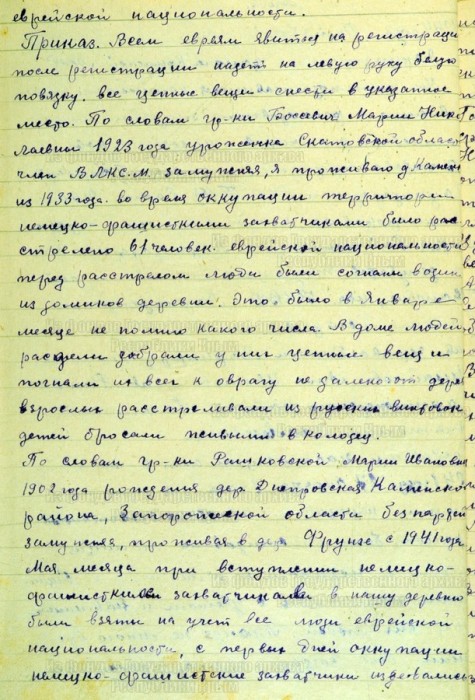 еврейской национальности.
Приказ. Всем евреям явится на регистраци
после регистрации надет на левую руку белую
повязку. все ценные вещи снести в указанное
место. По словам гр-ки Босевич Марии Ник
лаевны 1923 года уроженка области
член ВЛКС.М. замужняя, я проживаю д.
из 1933 года. во время оккупации территории
немецко-фашистскими захватчиками было рас
стрелено 61 человек. еврейской национальности
перед расстрелом люди были согнаты в один
из домиков деревни. Это было в Январе
месяце не помню какого числа. В доме людей
раздели забрали у них ценные вещи и
погнали их всех к оврагу не далеко от дере
взрослых расстреливали из русских винтовок
детей бросали живыми в колодец.
По словам гр-ки Рашковской Марии Ивановн
1902 года рождения дер. Днепровская Каменско
района, Запорожской области безпартий
замужняя, проживая в дер Фрунзе с 1941 года
Мая месяца при вступлении немецко-
фашистских захватчиков в нашу деревню
были взяты на учет все люди еврейской
национальности, с первых дней оккупации
немецко-фашистские захватчики издевались